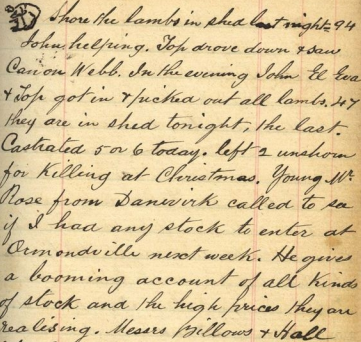 Shore the lambs in shed last night - 94
John helping. Top drove down & saw
Canon Webb. In the evening John El Eva
& Top got in & picked out all lambs. 47
they are in shed tonight, the last.
Castrated 5 or 6 today. left 2 unshorn
for Killing at Christmas. Young Mr
Rose from Danivirk called to see
if I had any stock to enter at
Ormondville next week. He gives
a booming account of all Kinds
of stock and the high prices they are
realising. Messrs Billows & Hall